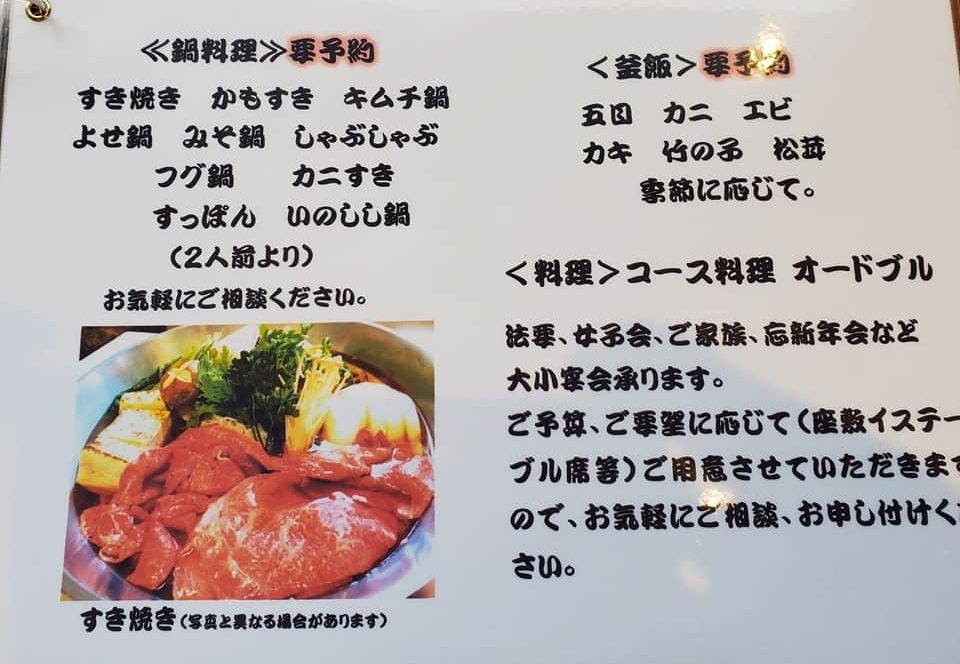 ≪鍋料理≫要予約
すき焼き かもすき キムチ鍋
よせ鍋 みそ鍋 しゃぶしゃぶ
フグ鍋 カニすき
すっぽん いのしし鍋
(2人前より)
お気軽にご相談ください。
すき焼き(写真と異なる場合があります)
<釜飯>要予約
五目 カニ エビ
カキ 竹の子 松茸
季節に応じて。
<料理>コース料理 オードブル
法要、女子会、ご家族、忘新年会など
大小宴会承ります。
ご予算、ご要望に応じて(座敷イステー
ブル席等)ご用意させていただきます
ので、お気軽にご相談、お申し付けくだ
さい。